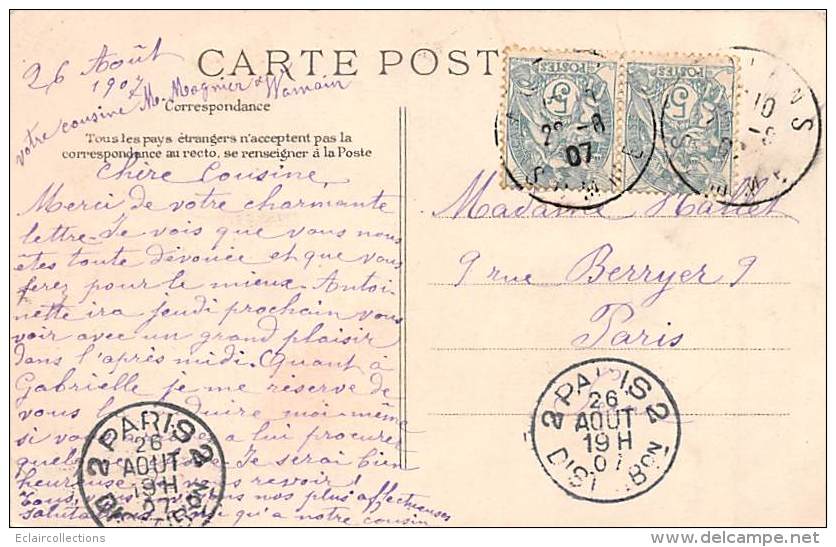 26 Août
1907
CARTE POST
votre cousine M. Magnier Wamain
Correspondance
Tous les pays étrangers n'acceptent pas la
correspondance au recto, se renseigner à la Poste
Chère Cousine,
Merci de votre charmante
lettre. Je vois que vous nous
êtes toute dévouée et que vous
ferez pour le mieux. Antoi-
nette ira jeudi prochain vous
voir avec un grand plaisir
dans l'après midi. Quant à
Gabrielle je me réserve de
vous la conduire moi-même
si vous à lui procurer
quelque Je serai bien
heureuse de vous revoir!
Tous, vous nos plus affectueuses
salutations ainsi qu'à notre cousin
POSTES
5
POSTES
5
-8
07
10
Madame Hallet
9 rue Berryer 9
Paris
2 PARIS 2
26
AOUT
19 H
07
DISTRIBON
2 PARIS 2
26
AOUT
19 H
07
DISTRIBON
Eclaircollections
delcampe.net